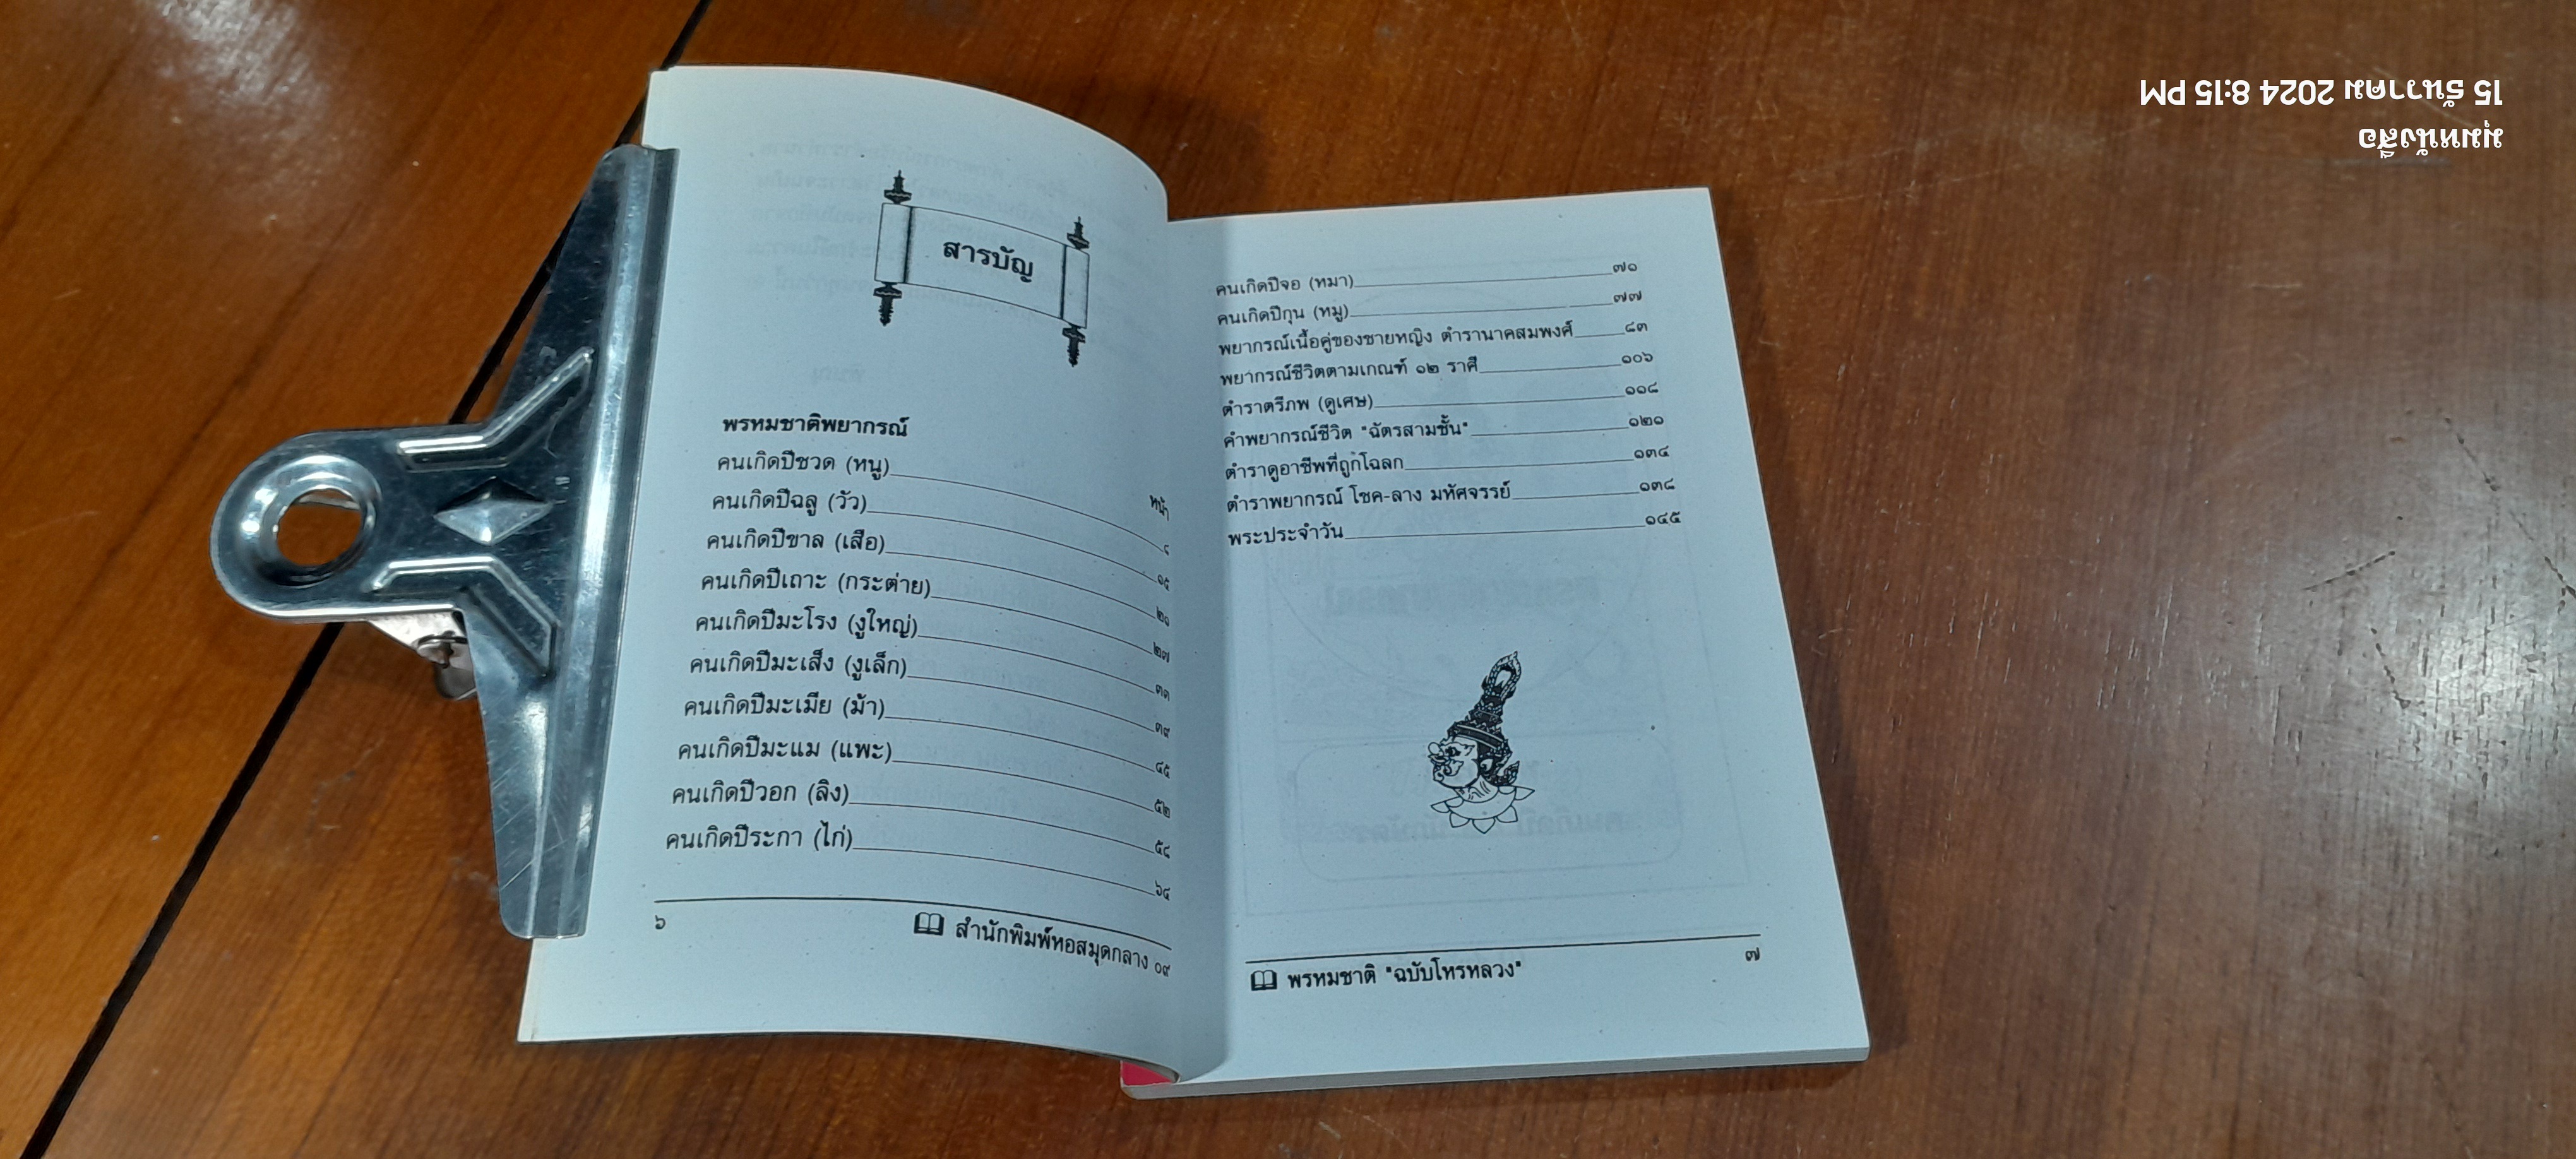 สารบัญ
หน้า
พรหมชาติพยากรณ์
คนเกิดปีชวด (หนู)_____๘
คนเกิดปีฉลู (วัว)_____๑๕
คนเกิดปีขาล (เสือ)_____๒๑
คนเกิดปีเถาะ (กระต่าย)_____๒๗
คนเกิดปีมะโรง (งูใหญ่)_____๓๓
คนเกิดปีมะเส็ง (งูเล็ก)_____๓๙
คนเกิดปีมะเมีย (ม้า)_____๔๕
คนเกิดปีมะแม (แพะ)_____๕๒
คนเกิดปีวอก (ลิง)_____๕๘
คนเกิดปีระกา (ไก่)_____๖๔
๖ สำนักพิมพ์หอสมุดกลาง ๐๙
คนเกิดปีจอ (หมา)_____๗๑
คนเกิดปีกุน (หมู)_____๗๗
พยากรณ์เนื้อคู่ของชายหญิง ตำรานาคสมพงศ์_____๘๓
พยากรณ์ชีวิตตามเกณฑ์ ๑๒ ราศี_____๑๐๖
ตำราตรีภพ (ดูเศษ)_____๑๑๘
คำพยากรณ์ชีวิต "ฉัตรสามชั้น"_____๑๒๑
ตำราดูอาชีพที่ถูกโฉลก_____๑๓๔
ตำราพยากรณ์ โชค-ลาง มหัศจรรย์_____๑๓๘
พระประจำวัน_____๑๔๕
พรหมชาติ "ฉบับโหรหลวง" ๗
มุมหนังสือ
15 ธันวาคม 2024 8:15 PM